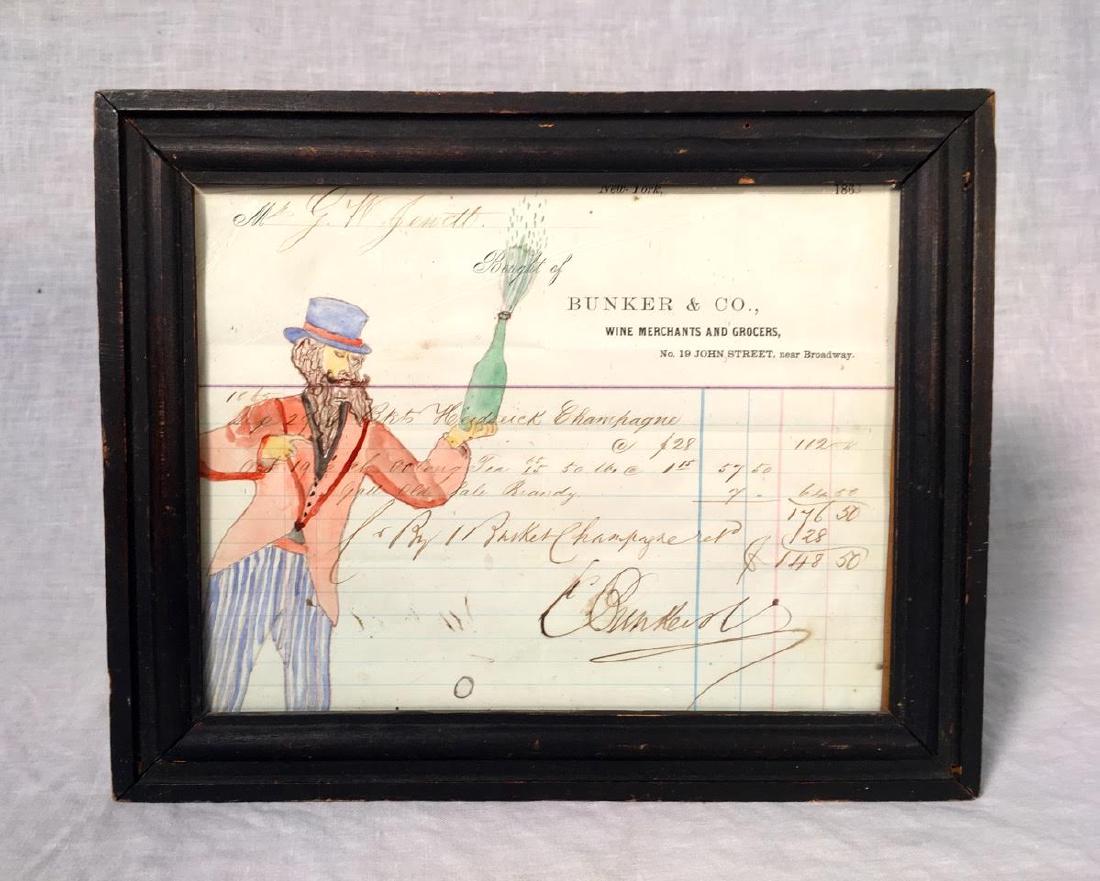 New-York, 186
Mr G. W. Jewett.
Bought of
BUNKER & CO.,
WINE MERCHANTS AND GROCERS,
No. 19 JOHN STREET, near Broadway.
29 Bkts Heidsieck Champagne
@ $28 112
19 Oolong Tea 50 lbs @ 1 15 57 50
Gall Old Pale Brandy 7
176 50
Cr By 1 Basket Champagne retd 28
$ 148 50